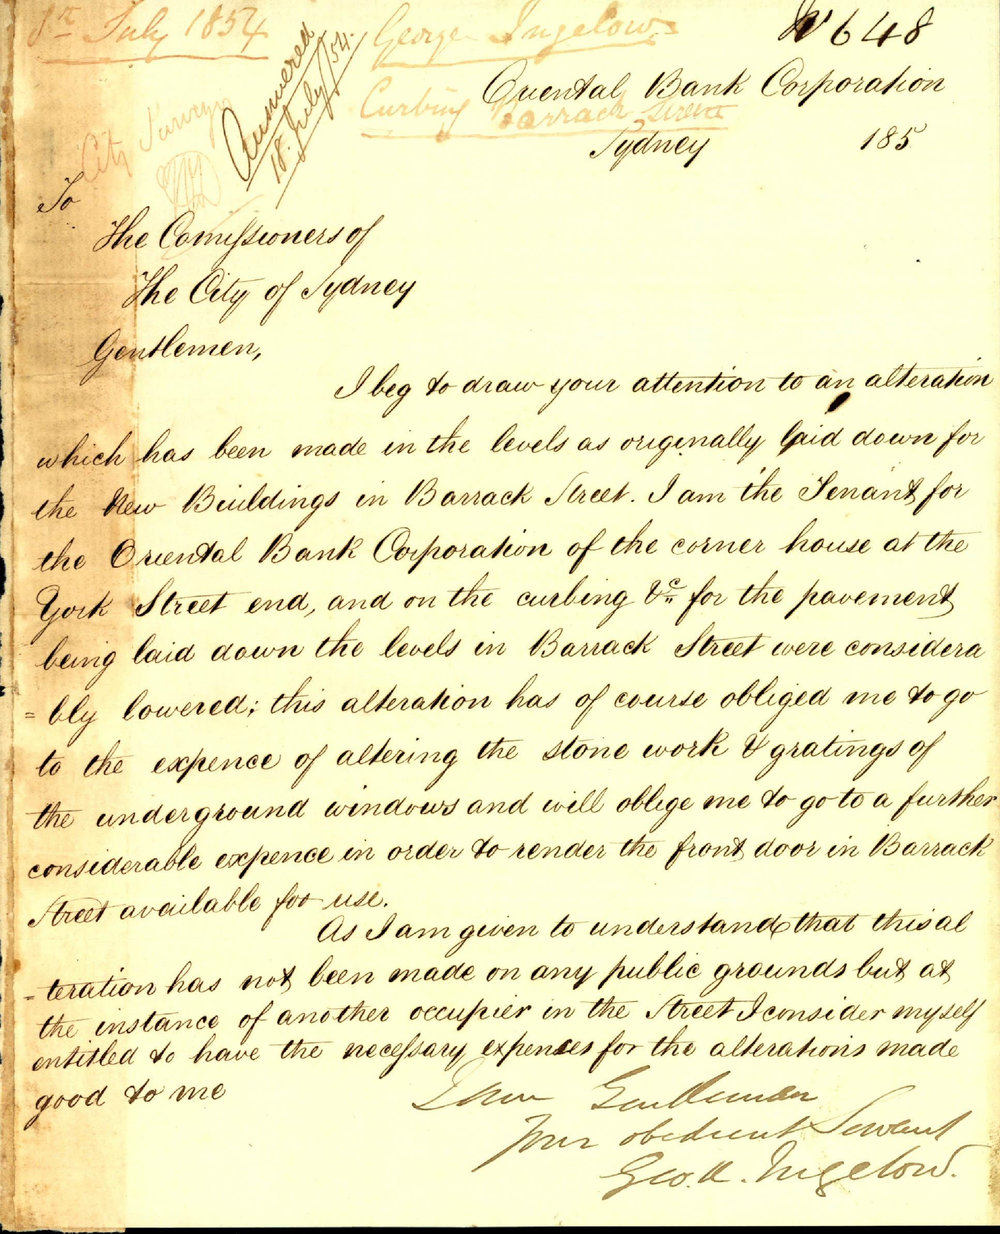 8th July 1854
George Ingelow
No 648
Answered
18. July /54.
Curbing Barrack Street
City Surveyor
Oriental Bank Corporation
Sydney 185
To
The Comissioners of
The City of Sydney
Gentlemen,
I beg to draw your attention to an alteration
which has been made in the levels as originally laid down for
the New Buildings in Barrack Street. I am the Tenant for
the Oriental Bank Corporation of the corner house at the
York Street end, and on the curbing &c. for the pavement
being laid down the levels in Barrack Street were considera
=bly lowered; this alteration has of course obliged me to go
to the expence of altering the stone work & gratings of
the underground windows and will oblige me to go to a further
considerable expence in order to render the front door in Barrack
Street available for use.
As I am given to understand that this al
=teration has not been made on any public grounds but at
the instance of another occupier in the Street I consider myself
entitled to have the necessary expenses for the alterations made
good to me
I am Gentlemen
Your obedient Servant
Geo. K. Ingelow.